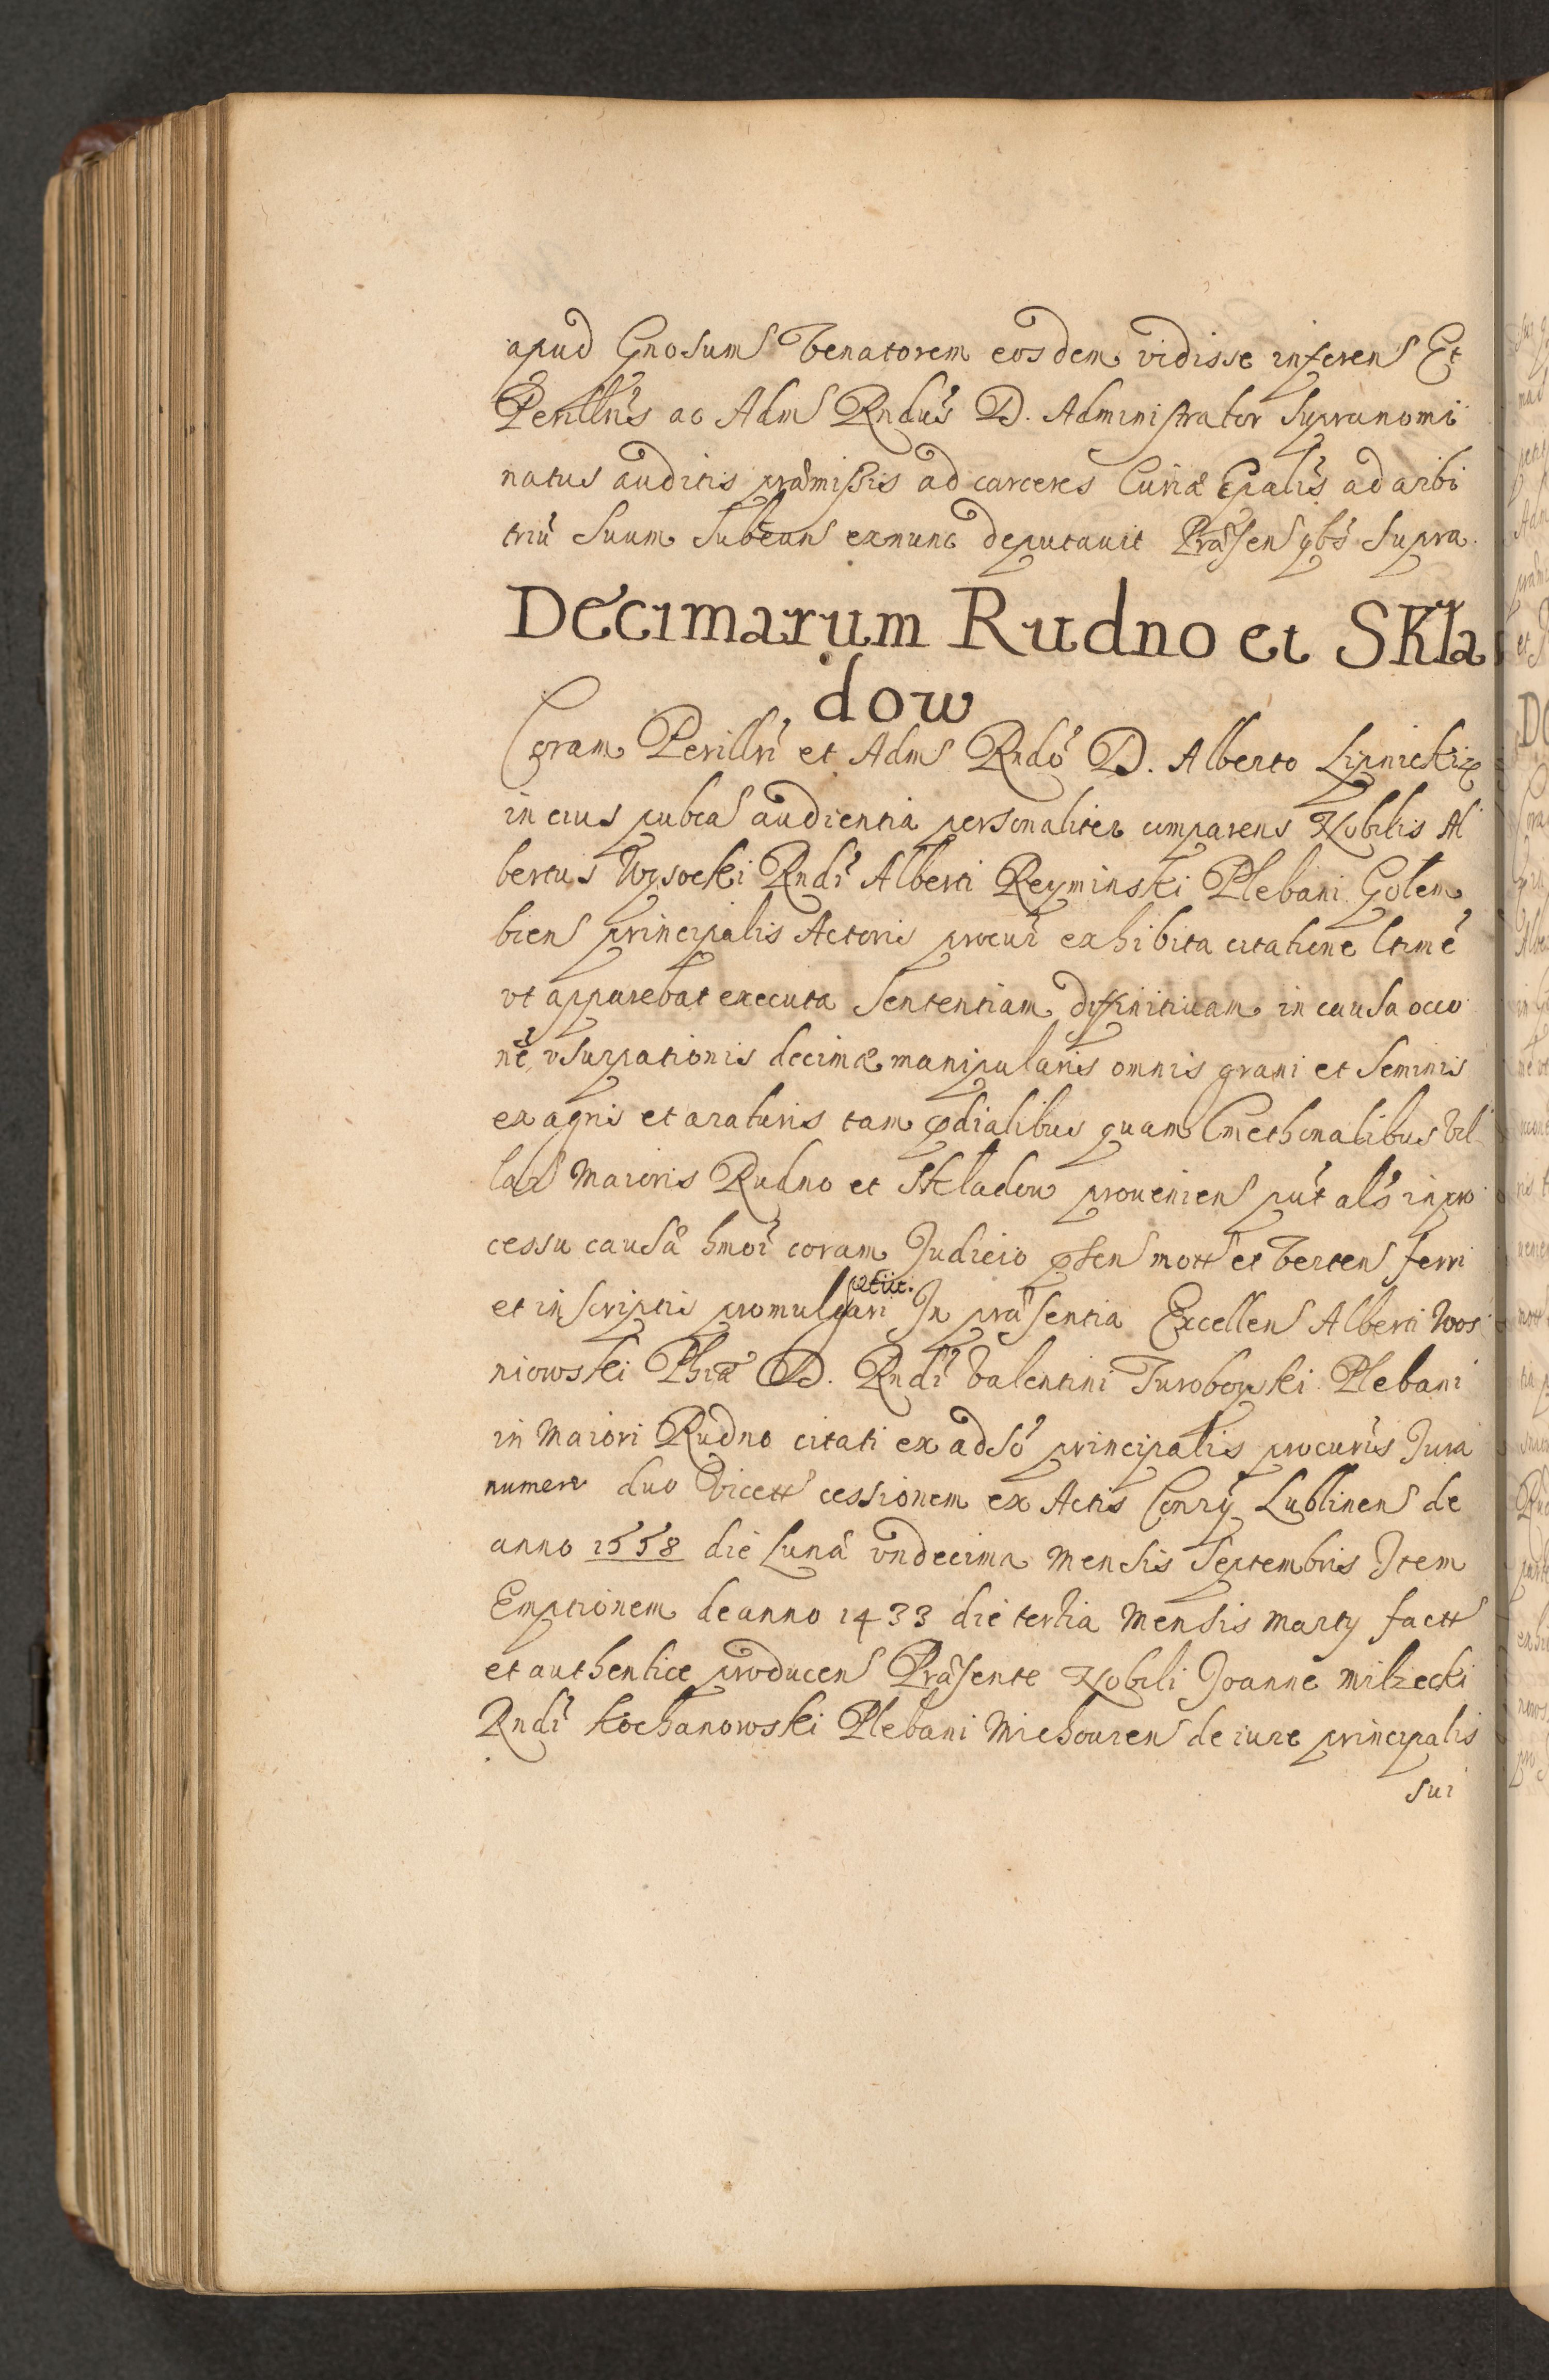 apud Gnosum Venatorem eosdem vidisse inferens Et
Perillris ac Adm Rndus D. Administrator supranomi
natus auditis præmissis ad carceres Curiæ Epalis ad arbi
triū suum subeun exnunc deputauit Præsen qbs supra.
Decimarum Rudno et Skła
dow
Coram Perillri et Adm Rndo D. Alberto Lipnicki
in eius pubca audientia personaliter comparens Nobilis Al
bertus Wysocki Rndi Alberti Reyminski Plebani Golem
bien principalis Actoris procur exhibita citatione ltime
vt apparebat executa sententiam diffinitiuam in causa occo
ne vsurpationis decimæ manipularis omnis grani et seminis
ex agris et araturis tam pdialibus quam Cmethonalibus vil
lar Maioris Rudno et Skladow prouenien put als in pro
cessu causæ hmoi coram Judicio psen mott et verten ferri
et in scriptis promulgari petiit. In præsentia Excellen Alberti Wos
niowski Phiæ D. Rndi Valentini Turobowski Plebani
in Maiori Rudno citati ex adso principalis procuris Jura
numero duo vicett cessionem ex Actis Conrÿ Lublinen de
anno 1558 die Lunæ vndecima Mensis Septembris Item
Emptionem de anno 1433 die tertia Mensis Marty factt
et authentice producen Præsente Nobili Joanne Milzecki
Rndi Kochanowski Plebani Michouien de iure principalis
sui